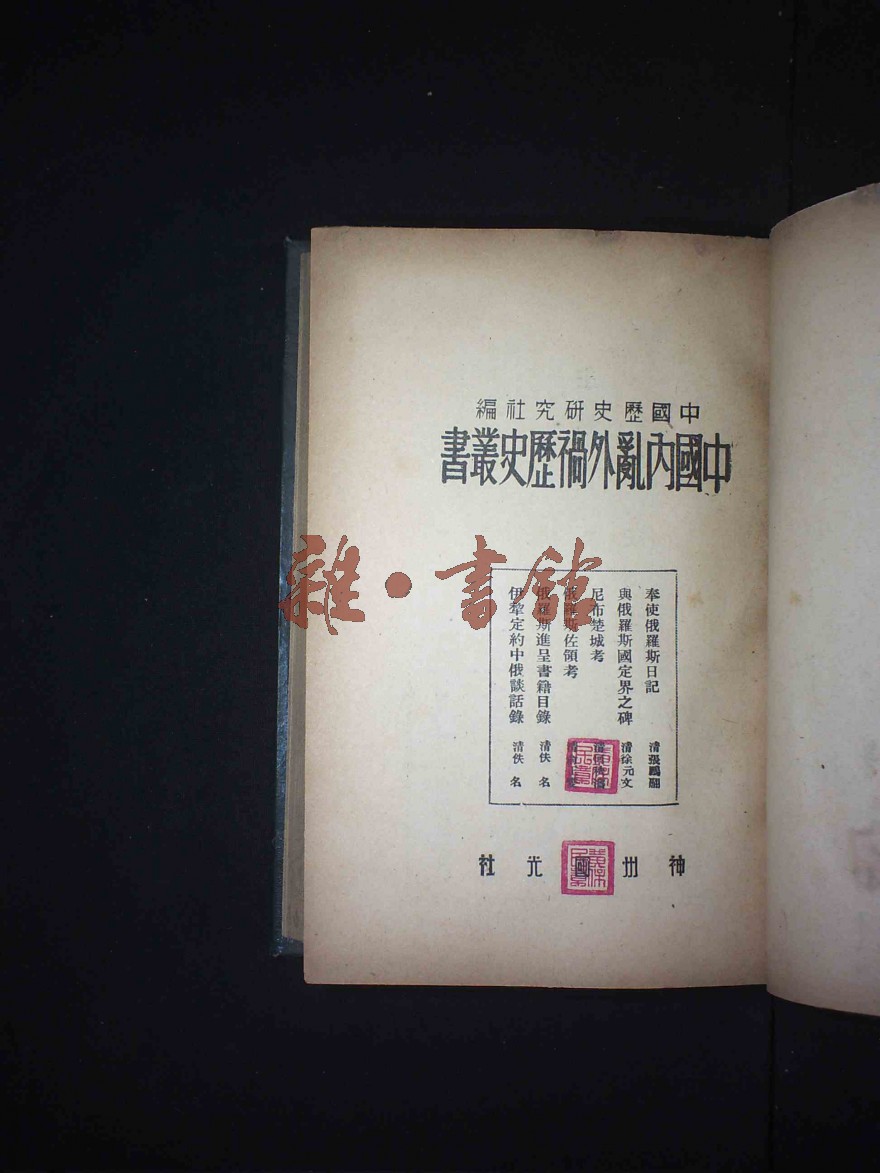 中國歷史研究社編
中國內亂外禍歷史叢書
奉使俄羅斯日記 清張鵬翮
與俄羅斯國定界之碑 清徐元文
尼布楚城考
俄羅斯佐領考
俄羅斯進呈書籍目錄 清佚名
伊犂定約中俄談話錄 清佚名
神州國光社
雜·書館